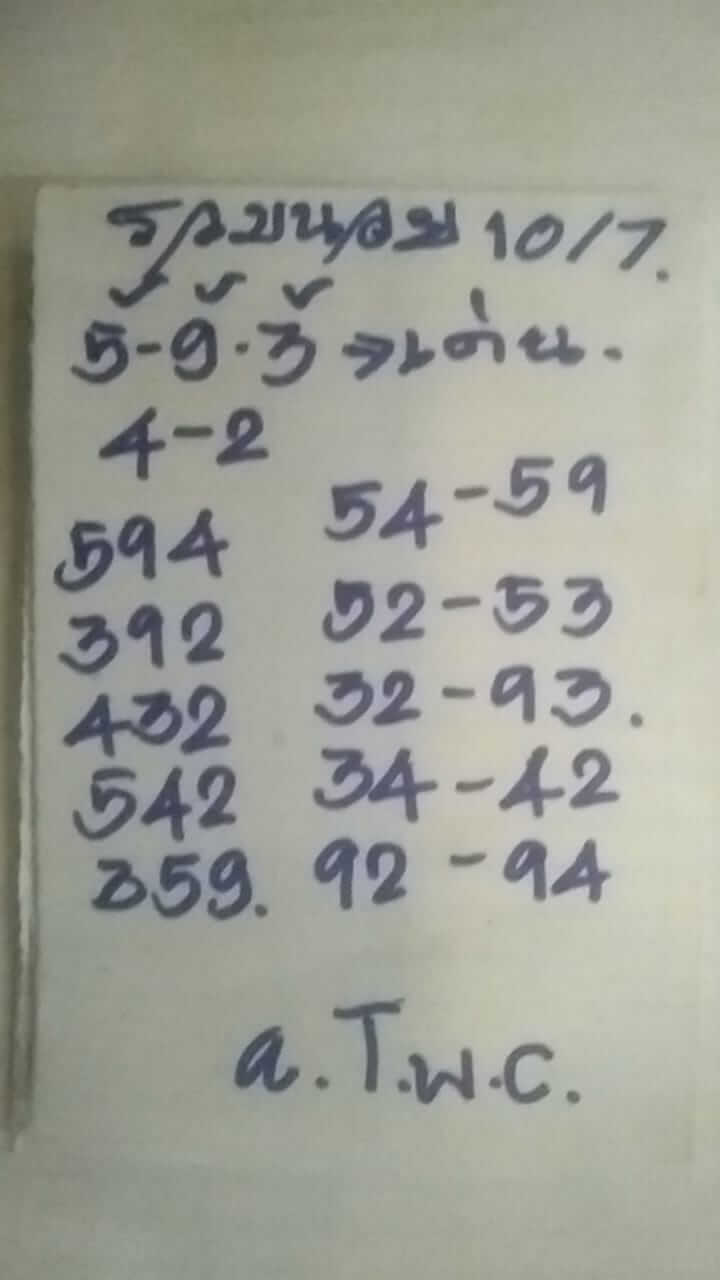 10/7.
5-9.3 →เด่น.
4-2
594 54-59
392 52-53
432 32-93.
542 34-42
359. 92-94
a.T.พ.C.